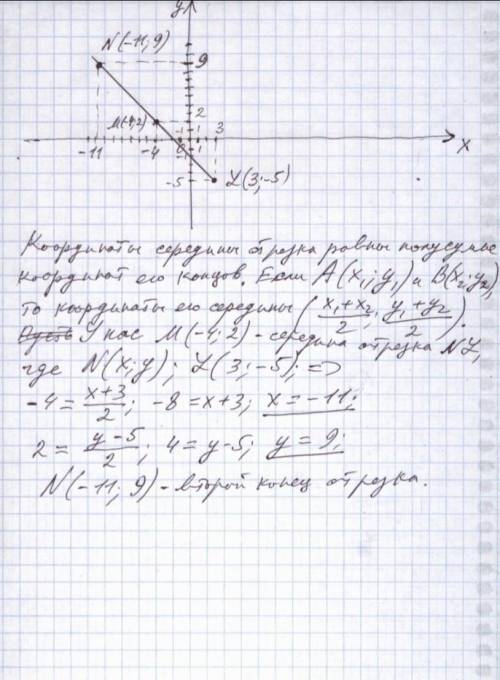 y
N(-11; 9)
9
M(-4; 2)
2
3
-11
-4
0
1
x
-1
-5
L(3; -5)
Координаты середины отрезка равны полусумме
координат его концов. Если A(x₁; y₁) и B(x₂; y₂),
то координаты его середины (x₁+x₂/2; y₁+y₂/2).
У нас M(-4; 2) - середина отрезка NL,
где N(x; y); L(3; -5); =>
-4 = x+3/2; -8 = x+3; x = -11;
2 = y-5/2; 4 = y-5; y = 9;
N(-11; 9) - второй конец отрезка.